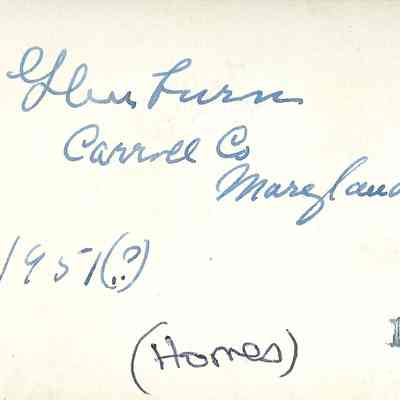 Glen Burn
Carroll Co
Maryland
1951(?)
(Homes)